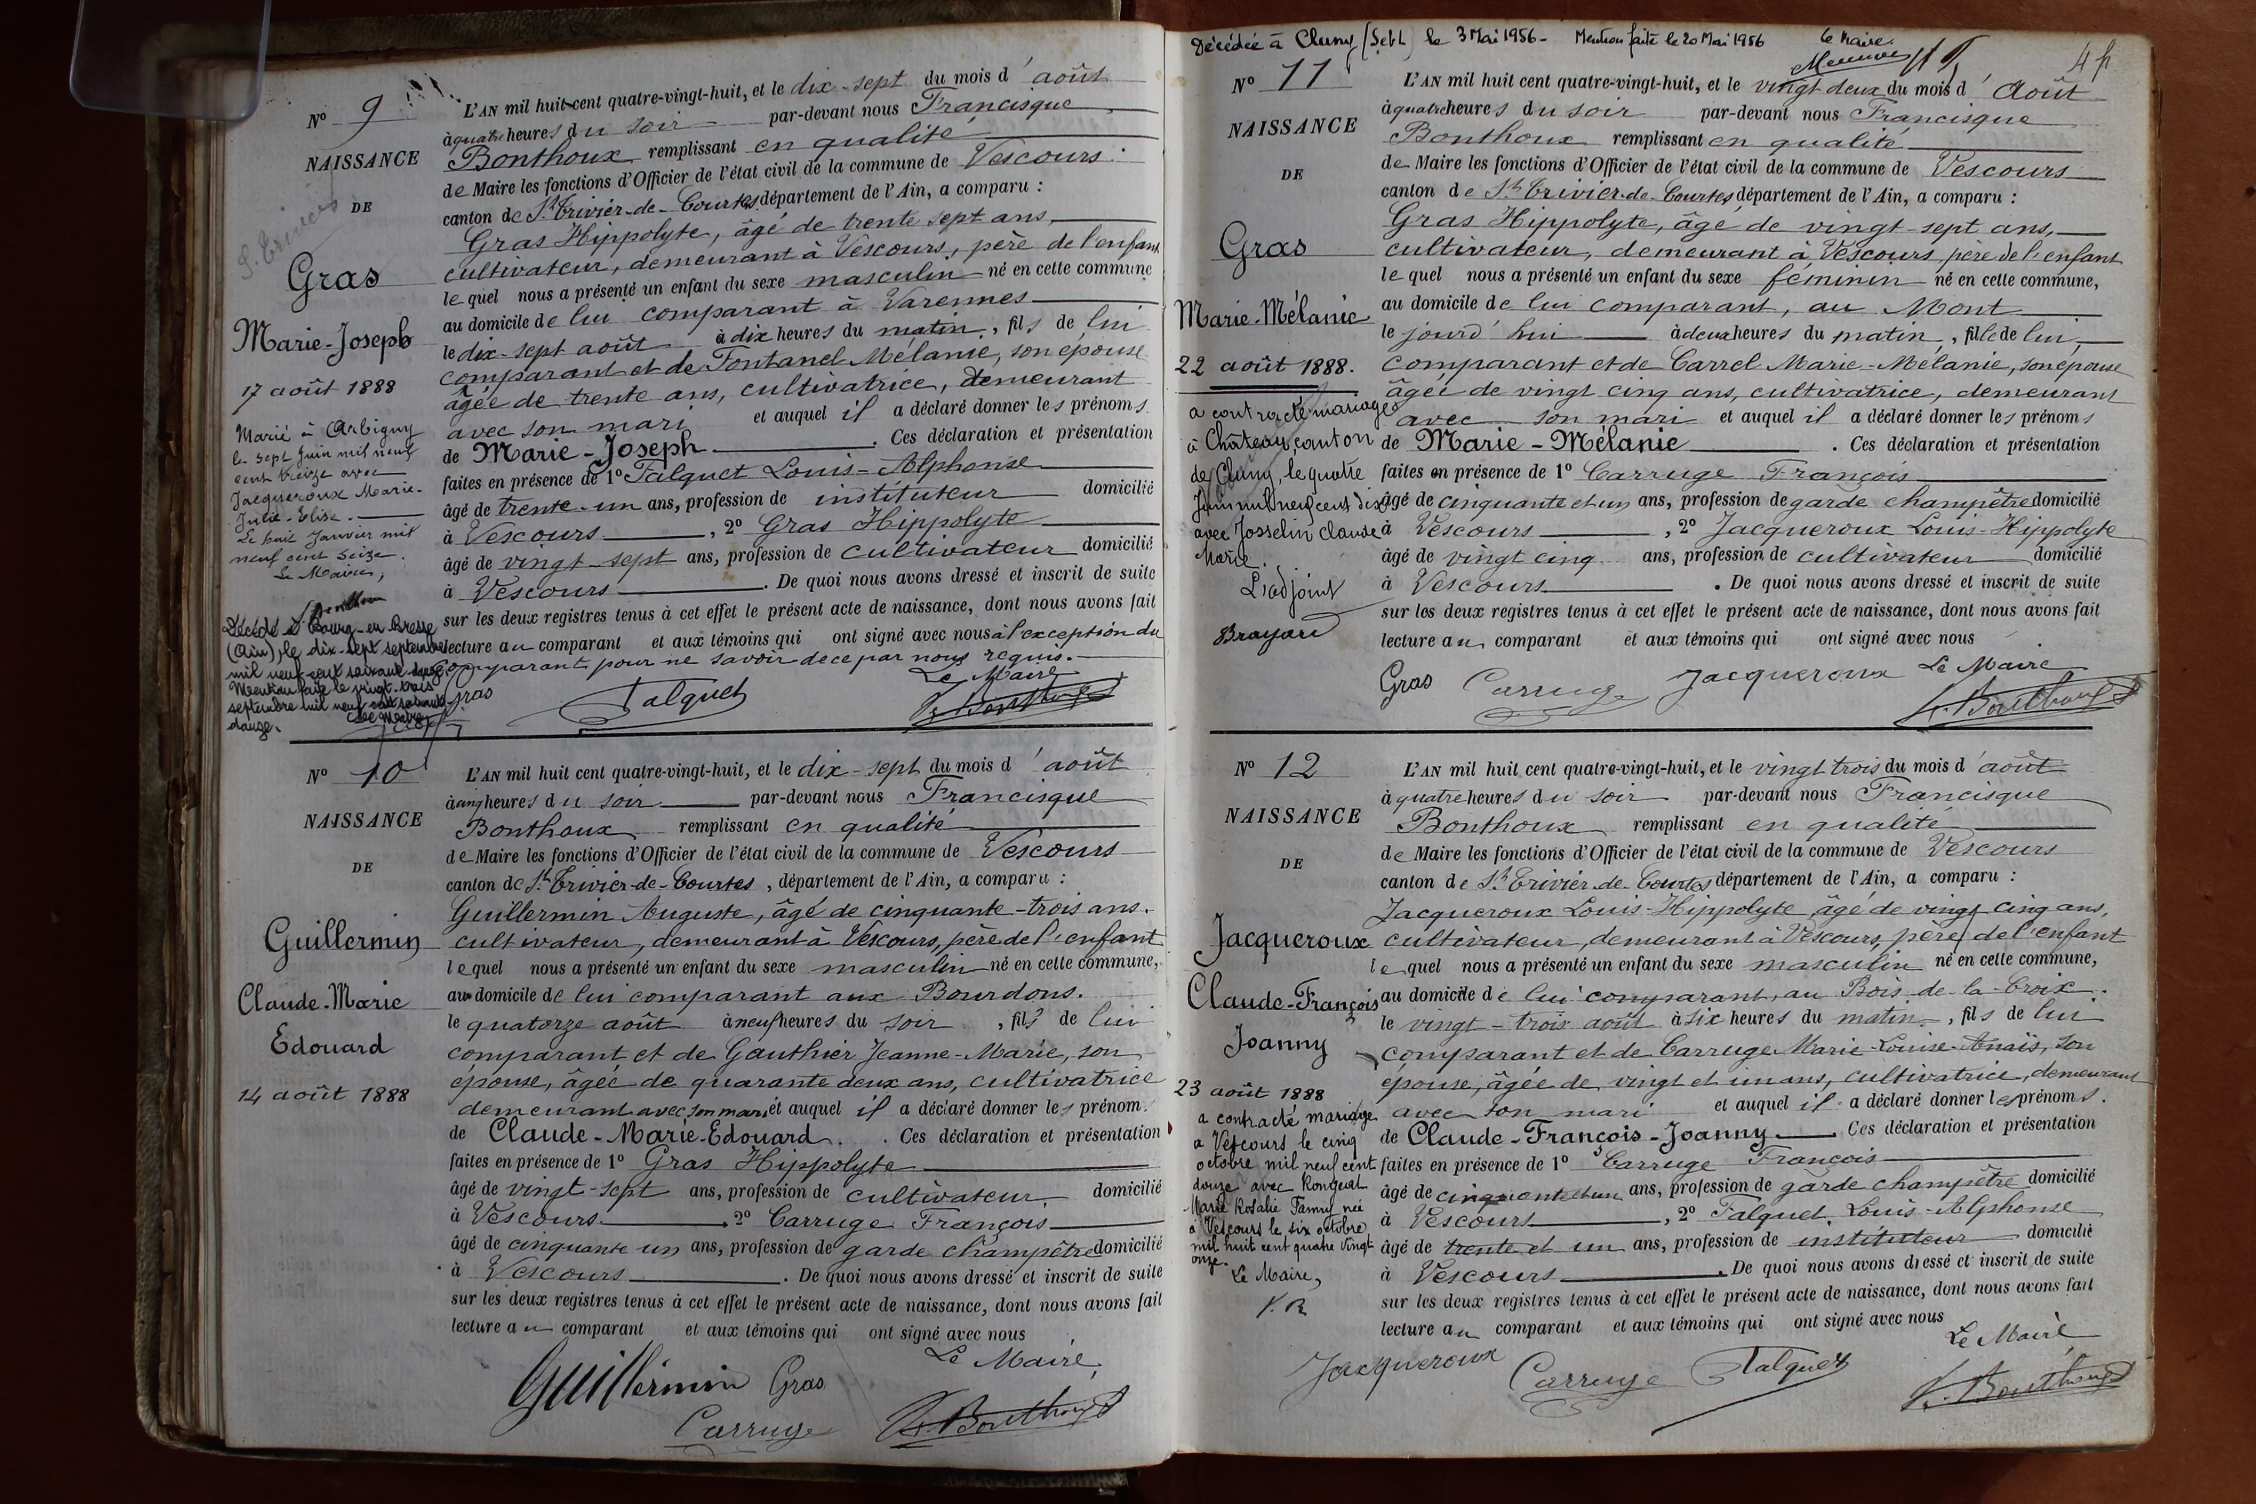 Nº 9
NAISSANCE
DE
Gras
Marie-Joseph
17 août 1888
Marié à Arbigny
le sept Juin mil neuf
cent treize avec
Jacqueroux Marie-
Julie-Elise.
Le huit Janvier mil
neuf cent seize.
Le Maire,
Décédé à Bourg-en-Bresse
(Ain), le dix-sept septembre
mil neuf cent soixante douze
Mention faite le vingt-trois
septembre mil neuf cent soixante
douze.
L'AN mil huit cent quatre-vingt-huit, et le dix-sept du mois d'août
à quatre heures du soir par-devant nous Francisque
Bonthoux remplissant en qualité
de Maire les fonctions d'Officier de l'état civil de la commune de Vescours
canton de St Trivier-de-Courtes département de l'Ain, a comparu :
Gras Hippolyte, âgé de trente sept ans,
cultivateur, demeurant à Vescours, père de l'enfant
lequel nous a présenté un enfant du sexe masculin né en cette commune
au domicile de lui comparant à Varennes
le dix-sept août à dix heures du matin, fils de lui
comparant et de Fontanel Mélanie, son épouse
âgée de trente ans, cultivatrice, demeurant
avec son mari et auquel il a déclaré donner les prénoms
de Marie-Joseph. Ces déclaration et présentation
faites en présence de 1º Falquet Louis-Alphonse
âgé de trente-un ans, profession de instituteur domicilié
à Vescours, 2º Gras Hippolyte
âgé de vingt-sept ans, profession de cultivateur domicilié
à Vescours. De quoi nous avons dressé et inscrit de suite
sur les deux registres tenus à cet effet le présent acte de naissance, dont nous avons fait
lecture au comparant et aux témoins qui ont signé avec nous à l'exception du
comparant pour ne savoir de ce par nous requis.
Gras Falquet Le Maire
F. Bonthoux
Nº 10
NAISSANCE
DE
Guillermin
Claude-Marie
Edouard
14 août 1888
L'AN mil huit cent quatre-vingt-huit, et le dix-sept du mois d'août
à cinq heures du soir par-devant nous Francisque
Bonthoux remplissant en qualité
de Maire les fonctions d'Officier de l'état civil de la commune de Vescours
canton de St Trivier-de-Courtes, département de l'Ain, a comparu :
Guillermin Auguste, âgé de cinquante-trois ans.
cultivateur, demeurant à Vescours, père de l'enfant
lequel nous a présenté un enfant du sexe masculin né en cette commune,
au domicile de lui comparant aux Bourdons.
le quatorze août à neuf heures du soir, fils de lui
comparant et de Gauthier Jeanne-Marie, son
épouse, âgée de quarante deux ans, cultivatrice
demeurant avec son mari et auquel il a déclaré donner les prénom.
de Claude-Marie-Edouard. Ces déclaration et présentation
faites en présence de 1º Gras Hippolyte
âgé de vingt-sept ans, profession de cultivateur domicilié
à Vescours 2º Carruge François
âgé de cinquante un ans, profession de garde champêtre domicilié
à Vescours. De quoi nous avons dressé et inscrit de suite
sur les deux registres tenus à cet effet le présent acte de naissance, dont nous avons fait
lecture au comparant et aux témoins qui ont signé avec nous
Le Maire,
Guillermin Gras
Carruge F. Bonthoux
Décédée à Cluny (S et L) le 3 Mai 1956 - Mention faite le 20 Mai 1956 Le Maire
Nº 11
NAISSANCE
DE
Gras
Marie-Mélanie
22 août 1888.
a contracté mariage
à Château, canton
de Cluny, le quatre
Juin mil neuf cent dix
avec Josselin Claude
Marie.
L'adjoint
Brayard
L'AN mil huit cent quatre-vingt-huit, et le vingt deux du mois d'Août
à quatre heures du soir par-devant nous Francisque
Bonthoux remplissant en qualité
de Maire les fonctions d'Officier de l'état civil de la commune de Vescours
canton de St Trivier-de-Courtes, département de l'Ain, a comparu :
Gras Hippolyte, âgé de vingt-sept ans,
cultivateur, demeurant à Vescours, père de l'enfant
lequel nous a présenté un enfant du sexe féminin né en cette commune,
au domicile de lui comparant, au Mont
le jourd'hui à deux heures du matin, fille de lui,
comparant et de Carrel Marie-Mélanie, son épouse
âgée de vingt cinq ans, cultivatrice, demeurant
avec son mari et auquel il a déclaré donner les prénoms
de Marie-Mélanie. Ces déclaration et présentation
faites en présence de 1º Carruge François
âgé de cinquante et un ans, profession de garde champêtre domicilié
à Vescours, 2º Jacqueroux Louis-Hippolyte
âgé de vingt cinq ans, profession de cultivateur domicilié
à Vescours. De quoi nous avons dressé et inscrit de suite
sur les deux registres tenus à cet effet le présent acte de naissance, dont nous avons fait
lecture au comparant et aux témoins qui ont signé avec nous
Gras Carruge Jacqueroux Le Maire
F. Bonthoux
Nº 12
NAISSANCE
DE
Jacqueroux
Claude-François
Joanny
23 août 1888
a contracté mariage
à Vescours le cinq
octobre mil neuf cent
douze avec Rongeat
Marie Rosalie Fanny née
à Vescours le six octobre
mil huit cent quatre vingt
onze.
Le Maire,
L'AN mil huit cent quatre-vingt-huit, et le vingt trois du mois d'août
à quatre heures du soir par-devant nous Francisque
Bonthoux remplissant en qualité
de Maire les fonctions d'Officier de l'état civil de la commune de Vescours
canton de St Trivier-de-Courtes département de l'Ain, a comparu :
Jacqueroux Louis-Hippolyte âgé de vingt cinq ans,
cultivateur, demeurant à Vescours, père de l'enfant
lequel nous a présenté un enfant du sexe masculin né en cette commune,
au domicile de lui comparant, au Bois-de-la-Croix.
le vingt-trois août à six heures du matin, fils de lui
comparant et de Carruge Marie-Louise-Anaïs, son
épouse, âgée de vingt et un ans, cultivatrice, demeurant
avec son mari et auquel il a déclaré donner les prénoms.
de Claude-François-Joanny. Ces déclaration et présentation
faites en présence de 1º Carruge François
âgé de cinquante et un ans, profession de garde champêtre domicilié
à Vescours, 2º Falquet Louis-Alphonse
âgé de trente et un ans, profession de instituteur domicilié
à Vescours. De quoi nous avons dressé et inscrit de suite
sur les deux registres tenus à cet effet le présent acte de naissance, dont nous avons fait
lecture au comparant et aux témoins qui ont signé avec nous
Le Maire
Jacqueroux Carruge Falquet
F. Bonthoux